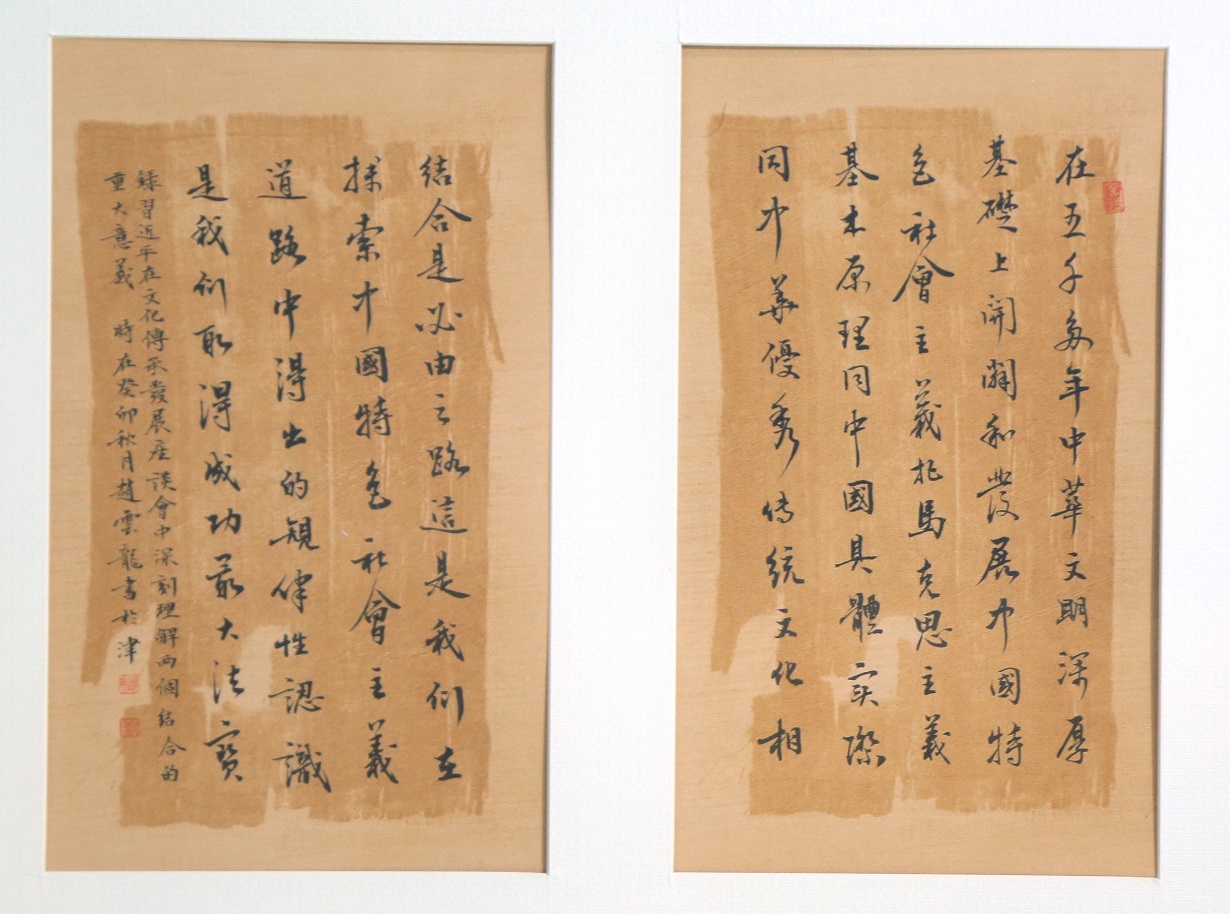 在五千多年中華文明深厚
基礎上開闢和發展中國特
色社會主義把馬克思主義
基本原理同中國具體实際
同中華優秀傳統文化相
結合是必由之路這是我们在
探索中國特色社會主義
道路中得出的規律性認識
是我们取得成功最大法寳
録習近平在文化傳承發展座談會中深刻理解两個結合的
重大意義 時在癸卯秋月趙雲龍書於津